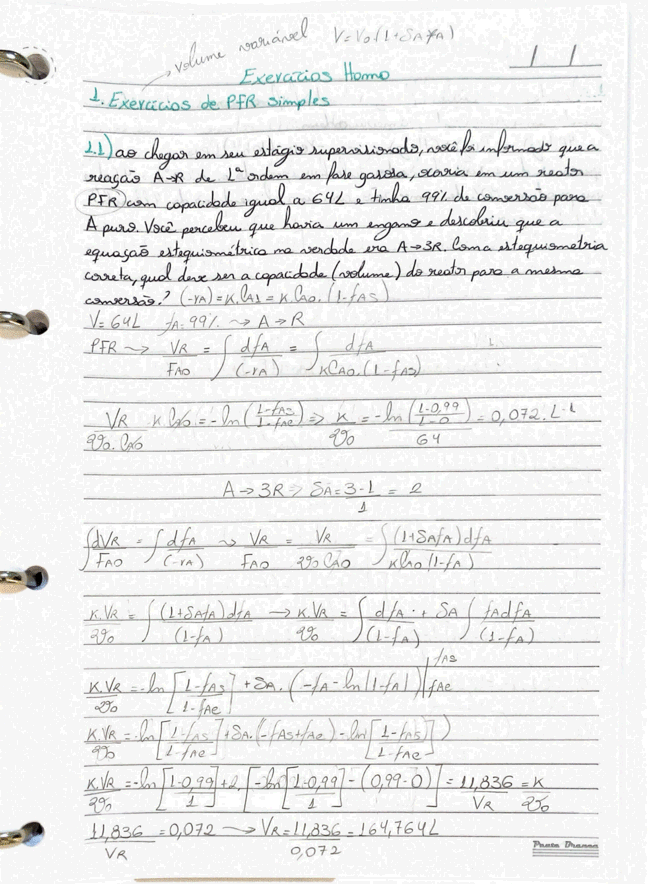 volume variável V=V₀(1+δA fA)
/ /
Exercícios Homo
1. Exercícios de PFR simples
1.1) ao chegar em seu estágio supervisionado, você foi informado que a
reação A→R de 1ª ordem em fase gasosa, ocorria em um reator
PFR com capacidade igual a 64L e tinha 99% de conversão para
A puro. Você percebeu que havia um engano e descobriu que a
equação estequiométrica na verdade era A→3R. Com a estequiometria
correta, qual deve ser a capacidade (volume) do reator para a mesma
conversão? (-rA) = K.CAs = K CA0. (1-fAs)
V= 64L fA= 99% ~> A→R
PFR ~> VR/FA0 = ∫ dfA/(-rA) = ∫ dfA/KCA0.(1-fAs)
VR/𝒱0.CA0 K CA0 = -ln(1-fAs/1-fAe) => K/𝒱0 = -ln(1-0,99/1-0)/64 = 0,072. L⁻¹
A→3R => δA = 3-1/1 = 2
∫dVR/FA0 = ∫ dfA/(-rA) ~> VR/FA0 = VR/𝒱0 CA0 = ∫(1+δAfA)dfA/KCA0(1-fA)
K.VR/𝒱0 = ∫(1+δAfA)dfA/(1-fA) → K.VR/𝒱0 = ∫ dfA/(1-fA) + δA ∫ fAdfA/(1-fA)
K.VR/𝒱0 = -ln[1-fAs/1-fAe] + δA. (-fA - ln(1-fA)) |fAs fAe
K.VR/𝒱0 = -ln[1-fAs/1-fAe] + δA.(-fAs+fAe) - ln[1-fAs/1-fAe])
K.VR/𝒱0 = -ln[1-0,99/1] + 2.[-ln[1-0,99/1] - (0,99-0)] = 11,836/VR = K/𝒱0
11,836/VR = 0,072 → VR = 11,836/0,072 = 164,764L